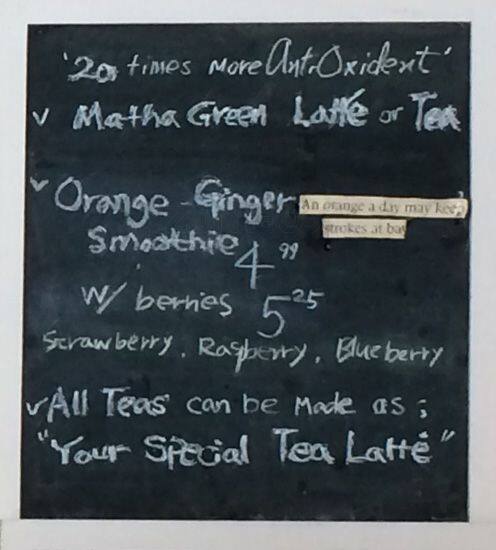 '20 times More AntiOxident'
v Matha Green Latté or Tea
v Orange - Ginger
An orange a day may keep
strokes at bay
Smoothie 4 99
w/ berries 5 25
Strawberry, Raspberry, Blueberry
v All Teas can be Made as ;
"Your Special Tea Latté"